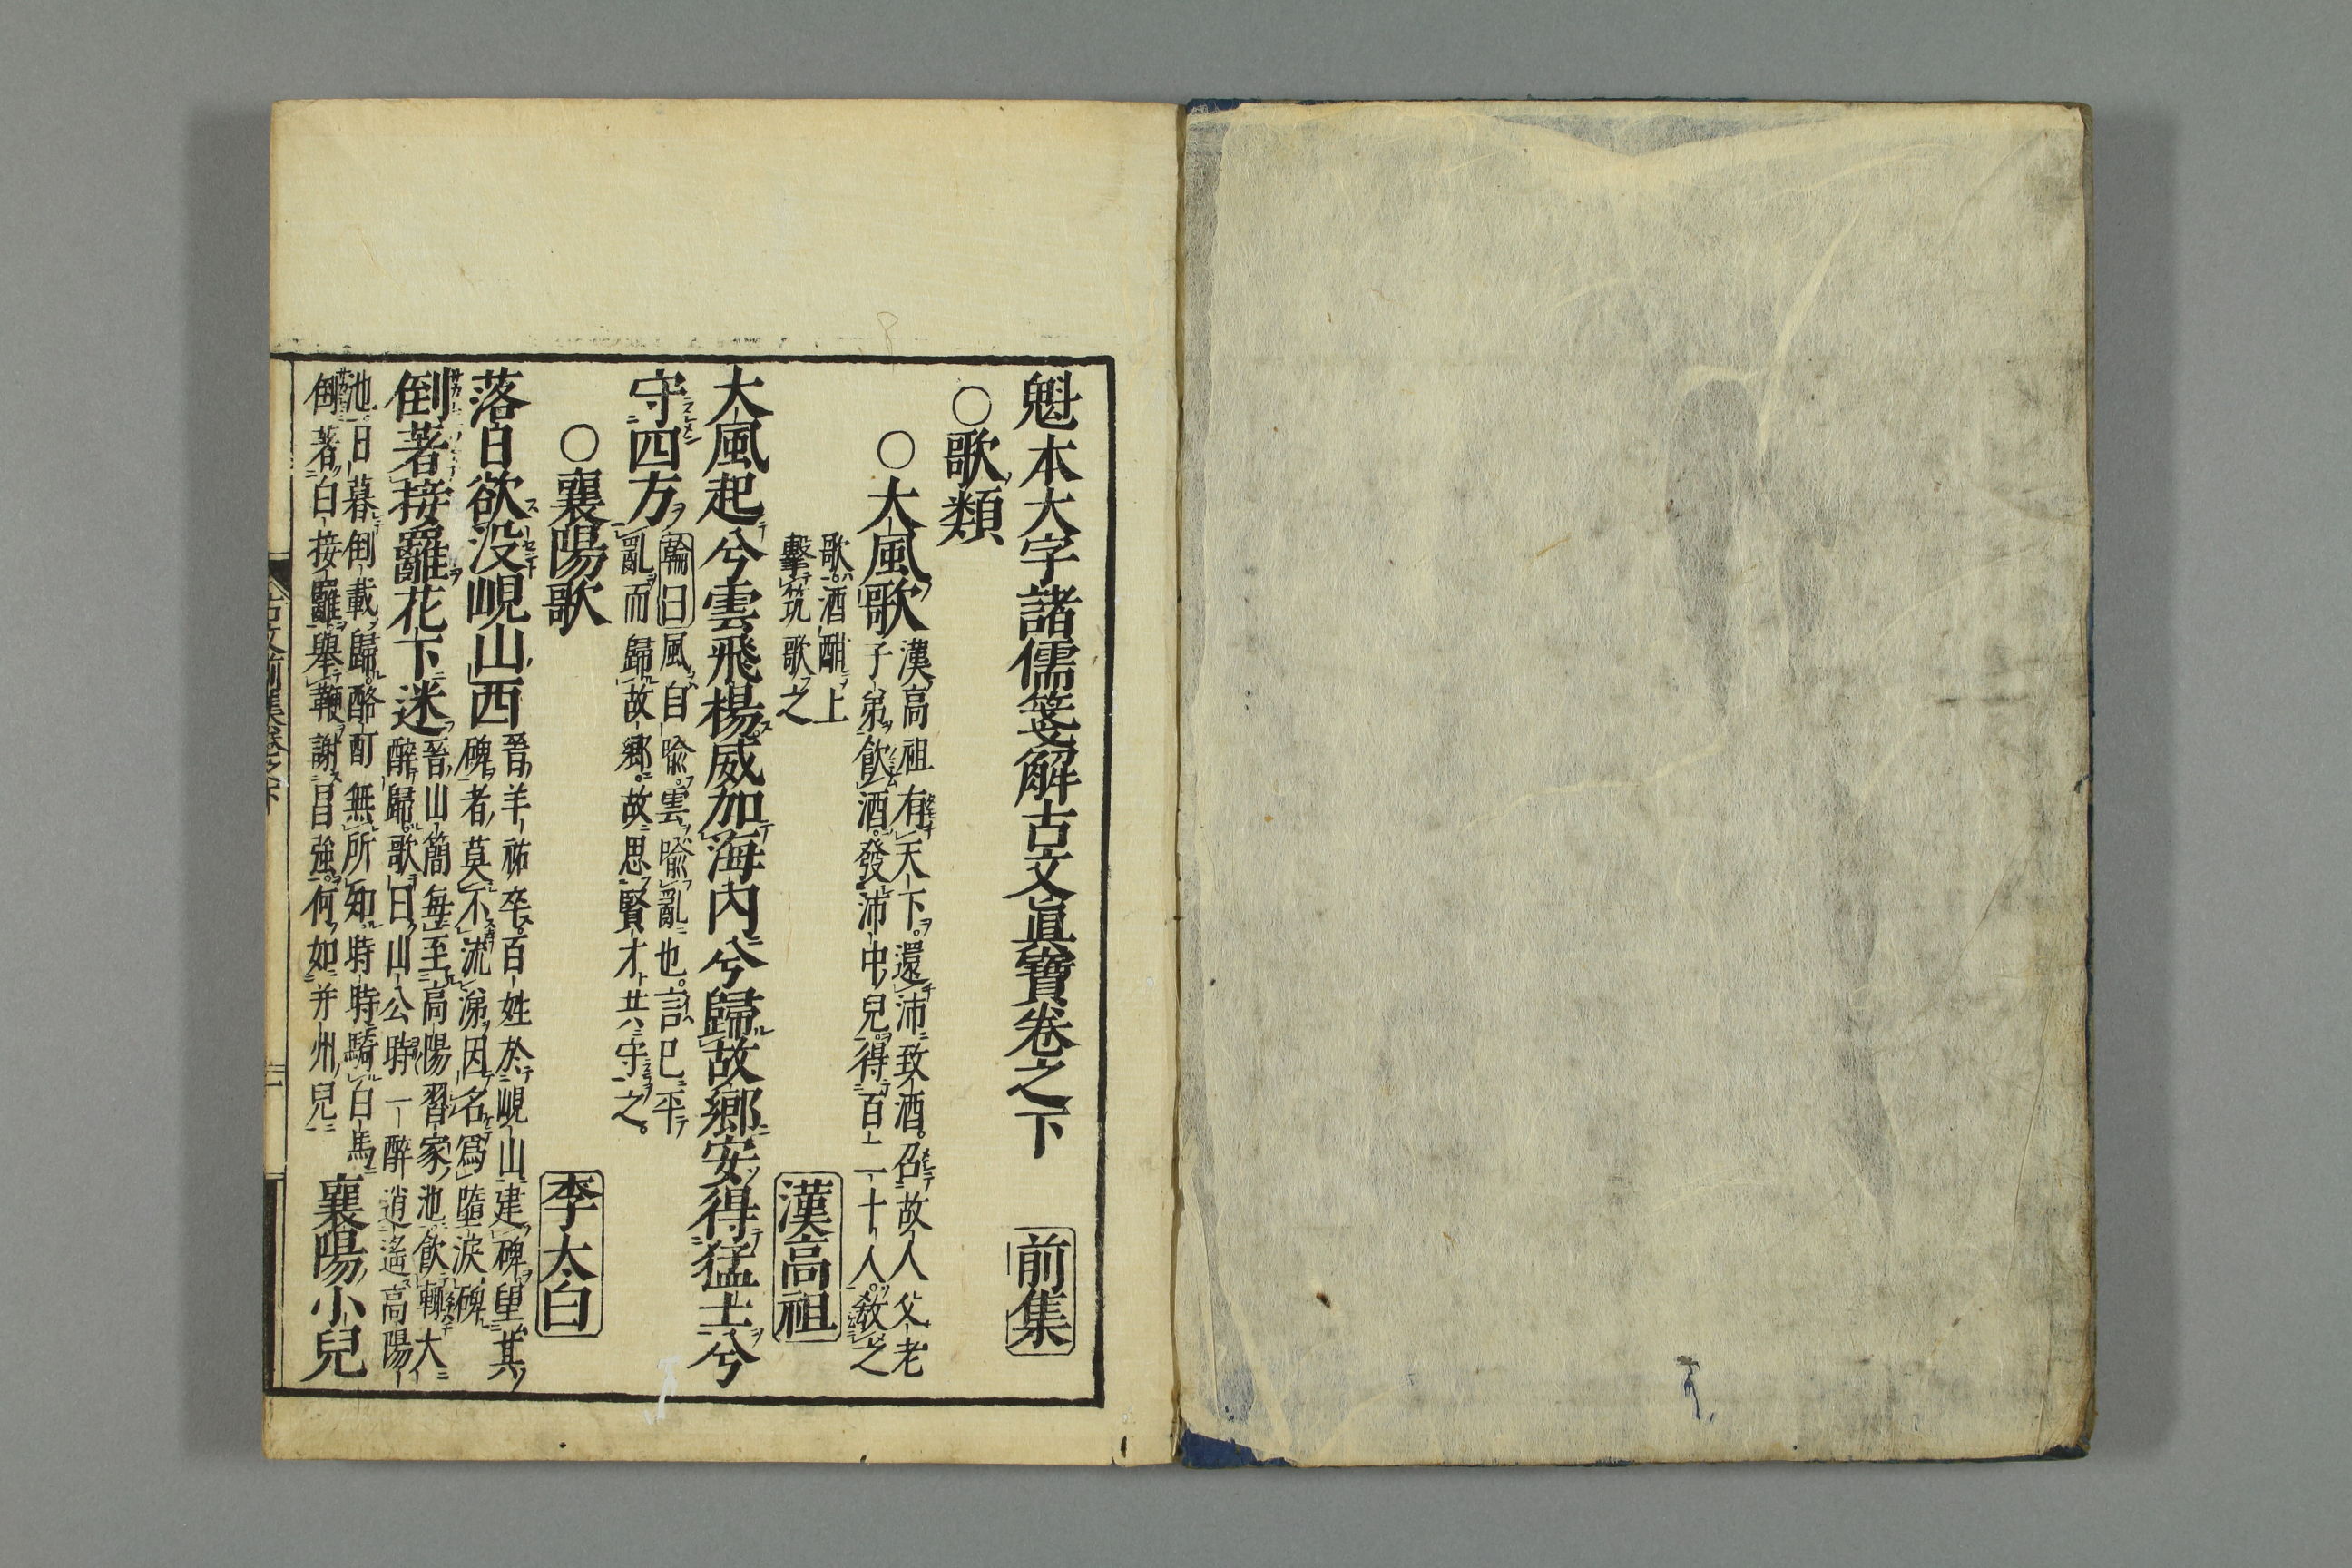 魁本大字諸儒箋解古文眞寳卷之下 前集
○歌類
○大風歌 漢高祖有天下還沛致酒召故人父老
子弟飲酒發沛中兒得百二十人教之
歌酒酣上
擊筑歌之 漢高祖
大風起兮雲飛楊威加海内兮歸故鄉安得猛士兮
守四方 翰曰風自喩雲喩亂也言已平
亂而歸故郷故思賢才共守之
○襄陽歌 李太白
落日欲没峴山西 晉羊祜卒百姓於峴山建碑望其
碑者莫不流涕因名爲墮淚碑
倒著接䍦花下迷 晉山簡毎至高陽習家池飲輙大
醉歸歌曰山公時一醉逍遙高陽
池日暮倒載歸酩酊無所知時時騎白馬
倒著白接䍦舉鞭謝昌強何如并州兒 襄陽小兒
古文前集卷之下 一